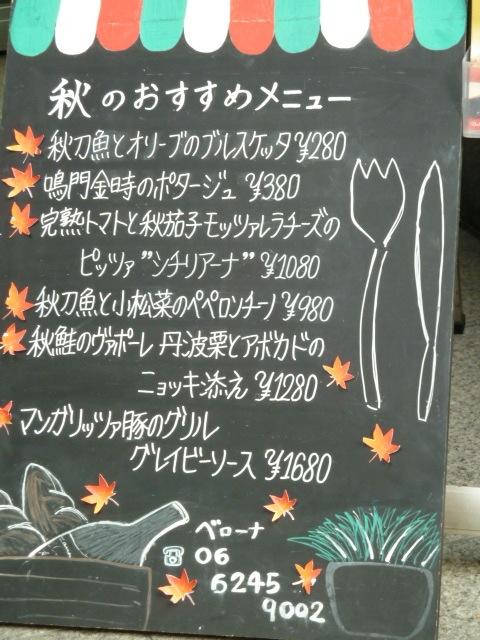 秋のおすすめメニュー
秋刀魚とオリーブのブルスケッタ ¥280
鳴門金時のポタージュ ¥380
完熟トマトと秋茄子モッツァレラチーズの
ピッツァ"シチリアーナ" ¥1080
秋刀魚と小松菜のペペロンチーノ ¥980
秋鮭のヴァポーレ 丹波栗とアボカドの
ニョッキ添え ¥1280
マンガリッツァ豚のグリル
グレイビーソース ¥1680
ベローナ
☎ 06
6245
9002